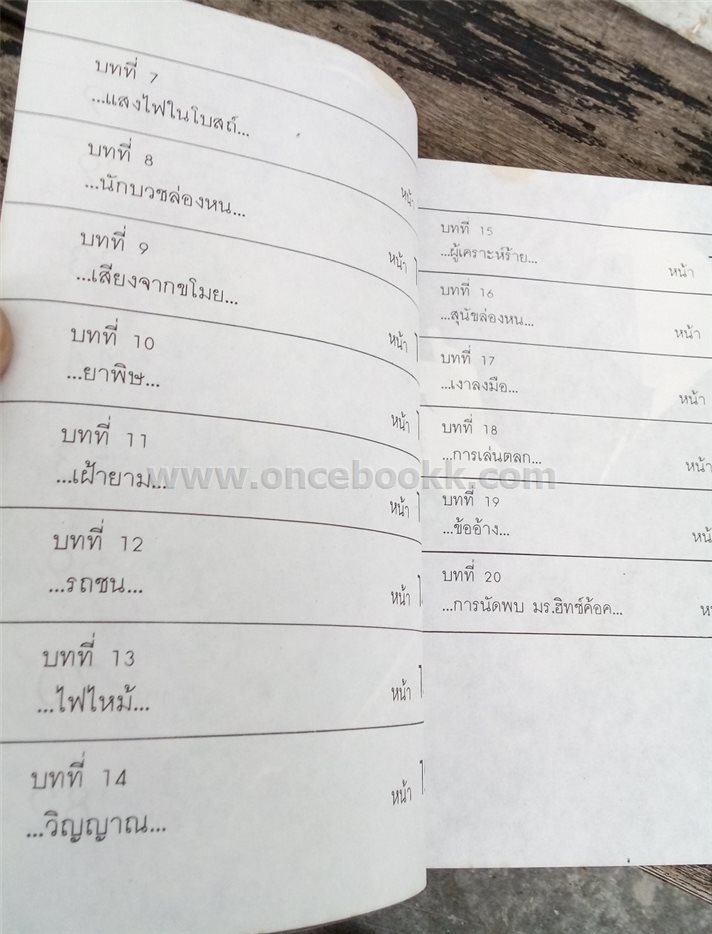 บทที่ 7
...แสงไฟในโบสถ์...
หน้า
บทที่ 8
...นักบวชล่องหน...
หน้า
บทที่ 9
...เสียงจากขโมย...
หน้า
บทที่ 10
...ยาพิษ...
หน้า
บทที่ 11
...เฝ้ายาม...
หน้า
บทที่ 12
...รถชน...
หน้า
บทที่ 13
...ไฟไหม้...
หน้า
บทที่ 14
...วิญญาณ...
หน้า
บทที่ 15
...ผู้เคราะห์ร้าย...
หน้า
บทที่ 16
...สุนัขล่องหน...
หน้า
บทที่ 17
...เงาลงมือ...
หน้า
บทที่ 18
...การเล่นตลก...
หน้า
บทที่ 19
...ข้ออ้าง...
บทที่ 20
...การนัดพบ มร.ฮิทช์ค้อค...
www.oncebookk.com